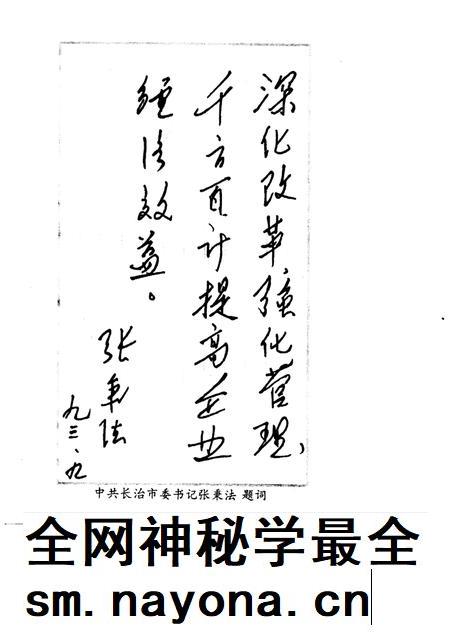 深化改革强化管理、
千方百计提高企业
经济效益。
张秉法
九三.九
中共长治市委书记张秉法 题词
全网神秘学最全
sm.nayona.cn